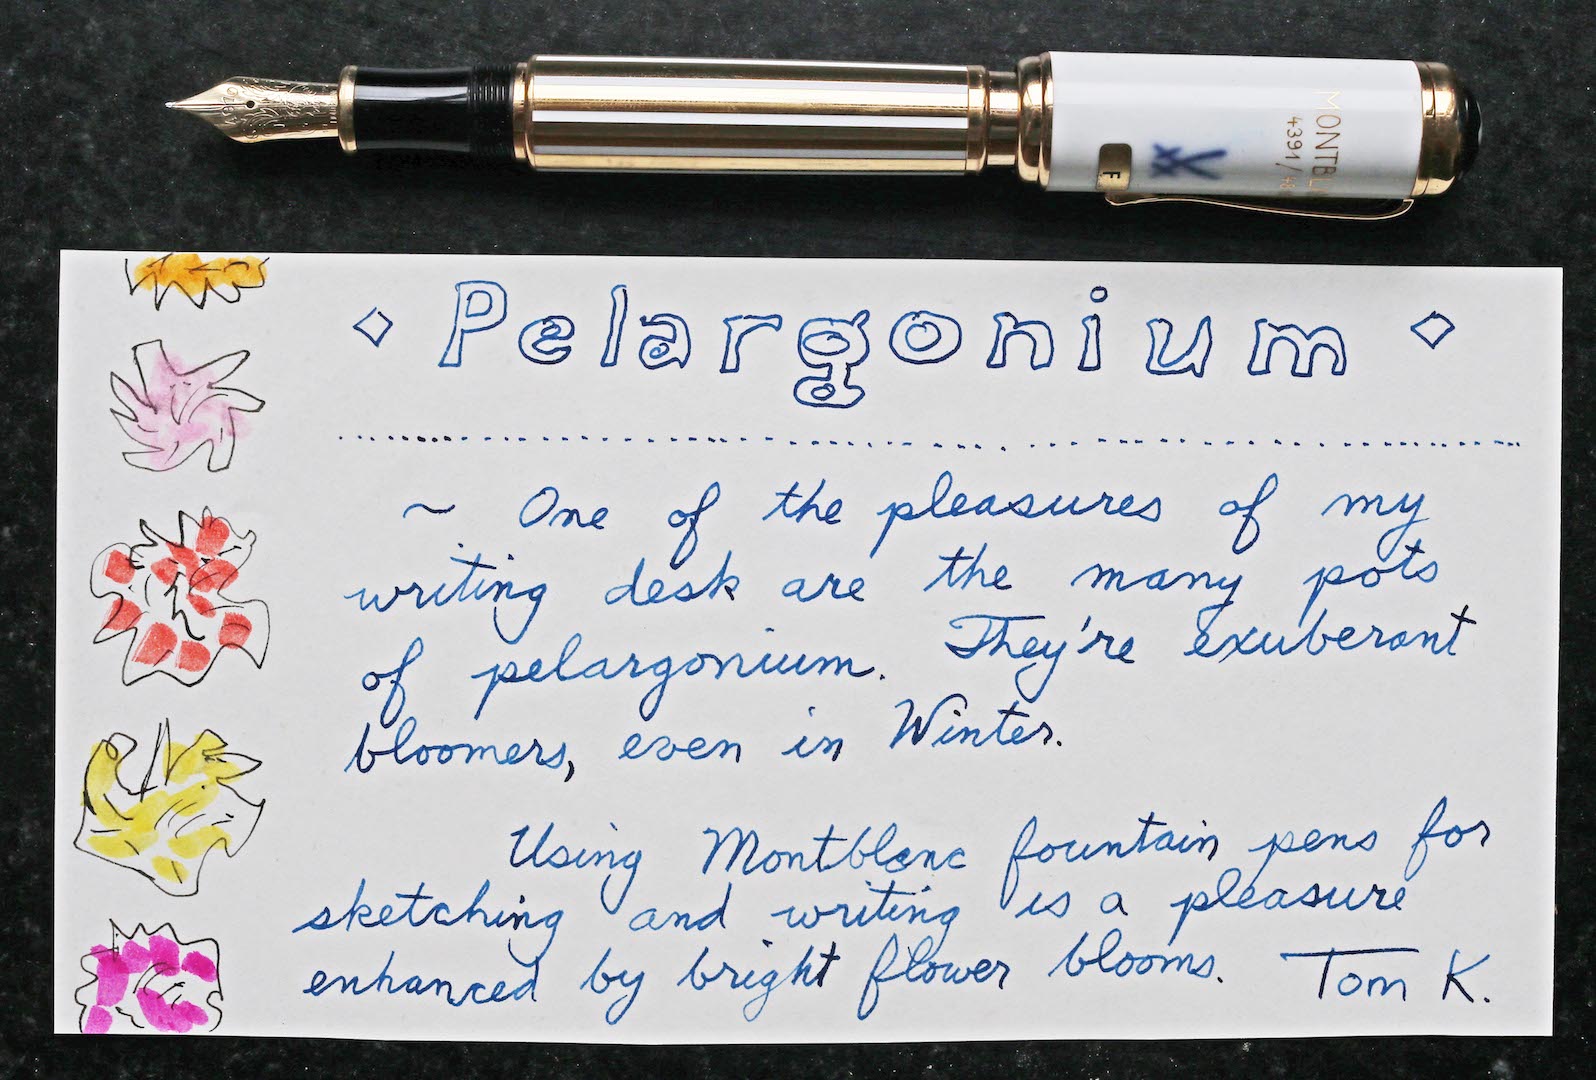 MONTBLA
4391/48
F
Pelargonium
~ One of the pleasures of my
writing desk are the many pots
of pelargonium. They're exuberant
bloomers, even in Winter.
Using Montblanc fountain pens for
sketching and writing is a pleasure
enhanced by bright flower blooms. Tom K.